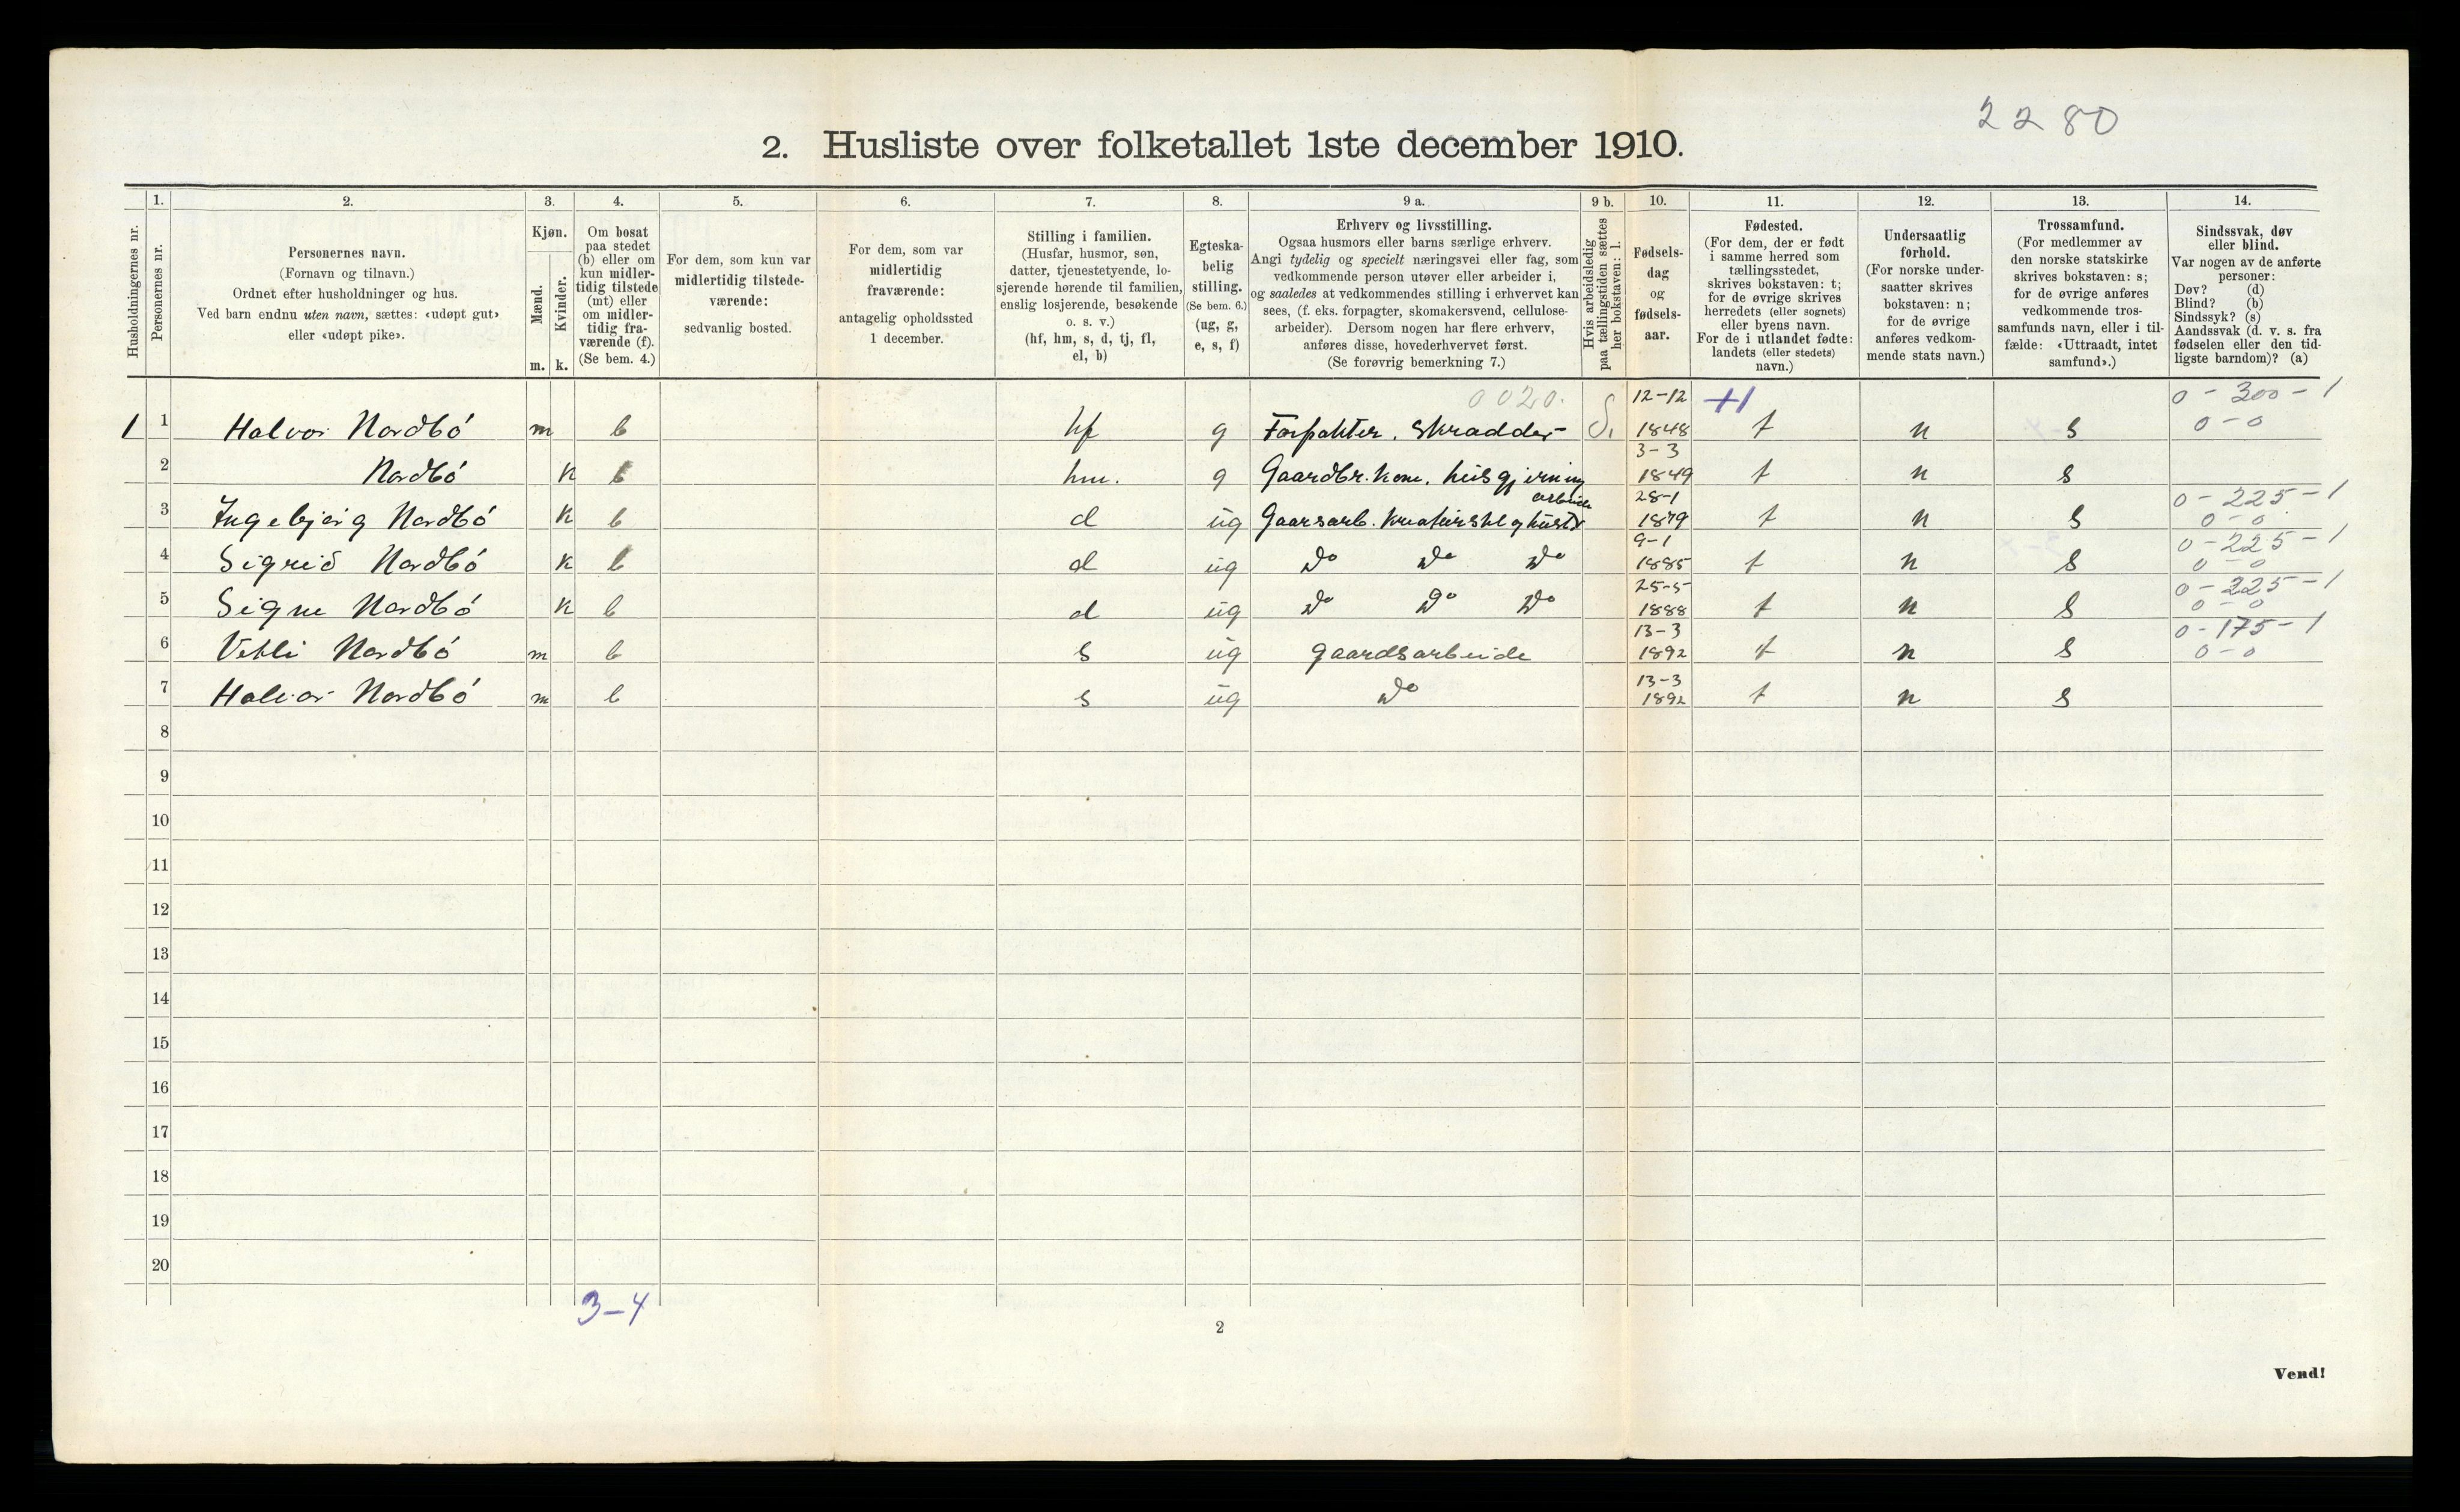 2280
2. Husliste over folketallet 1ste december 1910.
Husholdningernes nr.
1. Personernes nr.
2. Personernes navn.
(Fornavn og tilnavn.)
Ordnet efter husholdninger og hus.
Ved barn endnu uten navn, sættes: «udøpt gut»
eller «udøpt pike».
3. Kjøn.
Mænd. m.
Kvinder. k.
4. Om bosat
paa stedet
(b) eller om
kun midler-
tidig tilstede
(mt) eller
om midler-
tidig fra-
værende (f).
(Se bem. 4.)
5. For dem, som kun var
midlertidig tilstede-
værende:
sedvanlig bosted.
6. For dem, som var
midlertidig
fraværende:
antagelig opholdssted
1 december.
7. Stilling i familien.
(Husfar, husmor, søn,
datter, tjenestetyende, lo-
sjerende hørende til familien,
enslig losjerende, besøkende
o. s. v.)
(hf, hm, s, d, tj, fl,
el, b)
8. Egteska-
belig
stilling.
(Se bem. 6.)
(ug, g,
e, s, f)
9 a. Erhverv og livsstilling.
Ogsaa husmors eller barns særlige erhverv.
Angi tydelig og specielt næringsvei eller fag, som
vedkommende person utøver eller arbeider i,
og saaledes at vedkommendes stilling i erhvervet kan
sees, (f. eks. forpagter, skomakersvend, cellulose-
arbeider). Dersom nogen har flere erhverv,
anføres disse, hovederhvervet først.
(Se forøvrig bemerkning 7.)
9 b. Hvis arbeidsledig
paa tællingstiden sættes
her bokstaven: l.
10. Fødsels-
dag
og
fødsels-
aar.
11. Fødested.
(For dem, der er født
i samme herred som
tællingsstedet,
skrives bokstaven: t;
for de øvrige skrives
herredets (eller sognets)
eller byens navn.
For de i utlandet fødte:
landets (eller stedets)
navn.)
12. Undersaatlig
forhold.
(For norske under-
saatter skrives
bokstaven: n;
for de øvrige
anføres vedkom-
mende stats navn.)
13. Trossamfund.
(For medlemmer av
den norske statskirke
skrives bokstaven: s;
for de øvrige anføres
vedkommende tros-
samfunds navn, eller i til-
fælde: «Uttraadt, intet
samfund».)
14. Sindssvak, døv
eller blind.
Var nogen av de anførte
personer:
Døv? (d)
Blind? (b)
Sindssyk? (s)
Aandssvak (d. v. s. fra
fødselen eller den tid-
ligste barndom)? (a)
0020. 12-12 +1 0 - 300 - 1
1 1 Halvor Nordbó m b hf g Forpakter. Skradder- 1848 t n s 0-0
2 Nordbó K b hm. g Gaardbr. kone. husgjerning 3-3 1849 t n s
3 Ingebjørg Nordbó K b d ug Gaarsarb. kreaturstel og hust arbeide 28-1 1879 t n s 0-225-1 0-0
4 Sigrid Nordbó K b d ug Do Do Do 9-1 1885 t n s 0-225-1 0-0
5 Signe Nordbó K b d ug Do Do Do 25-5 1888 t n s 0-225-1 0-0
6 Vetli Nordbó m b s ug gaardsarbeide 13-3 1892 t n s 0-175-1 0-0
7 Halvor Nordbó m b s ug Do 13-3 1892 t n s
8
9
10
11
12
13
14
15
16
17
18
19
20
3-4
2
Vend!